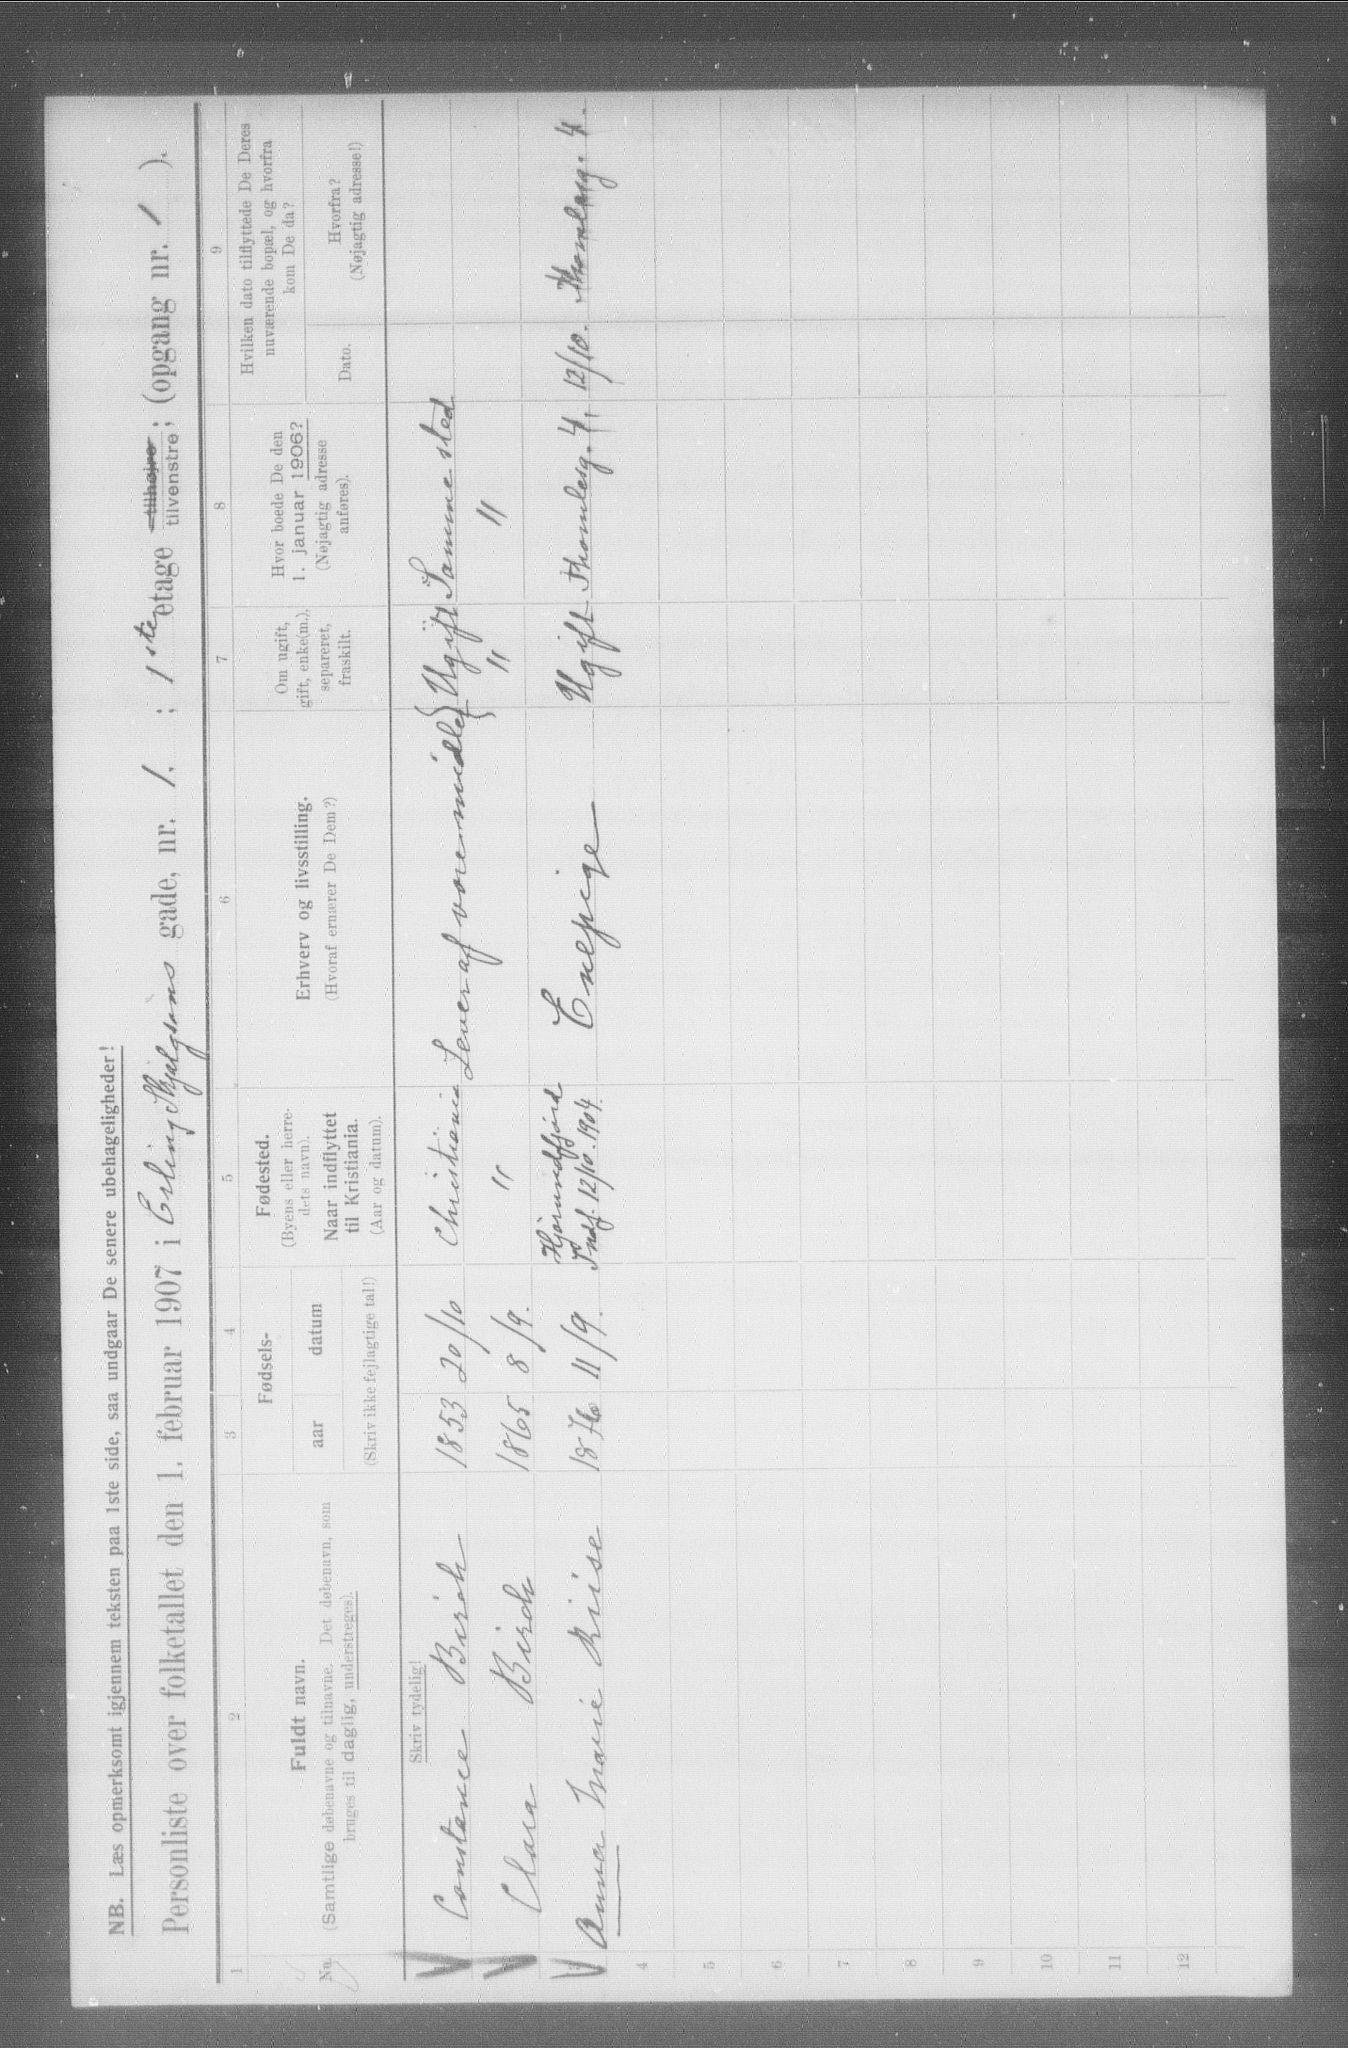 NB. Læs opmerksomt igjennem teksten paa 1ste side, saa undgaar De senere ubehageligheder!
Personliste over folketallet den 1. februar 1907 i Erling Skjalgsens gade, nr. 1. ; 1ste etage tilhøjre tilvenstre; (opgang nr. 1 ).
1 2 3 4 5 6 7 8 9
No. Fuldt navn. (Samtlige døbenavne og tilnavne. Det døbenavn, som bruges til daglig, understreges).
Fødsels- aar datum (Skriv ikke fejlagtige tal!)
Fødested. (Byens eller herredets navn). Naar indflyttet til Kristiania. (Aar og datum).
Erhverv og livsstilling. (Hvoraf ernærer De Dem?)
Om ugift, gift, enke(m.), separeret, fraskilt.
Hvor boede De den 1. januar 1906? (Nøjagtig adresse anføres).
Hvilken dato tilflyttede De Deres nuværende bopæl, og hvorfra kom De da?
Dato. Hvorfra? (Nøjagtig adresse!)
Skriv tydelig!
Constance Birch 1853 20/10 Christiania Lever af vore midler } Ugift Samme sted
Clara Birch 1865 8/9. " " "
Hjørundfjord
3 Anna Marie Riise 1876 11/9. Indf. 12/10. 1904. Enepige Ugift Thomlesg. 4, 12/10. Thomlesg. 4.
4
5
6
7
8
9
10
11
12